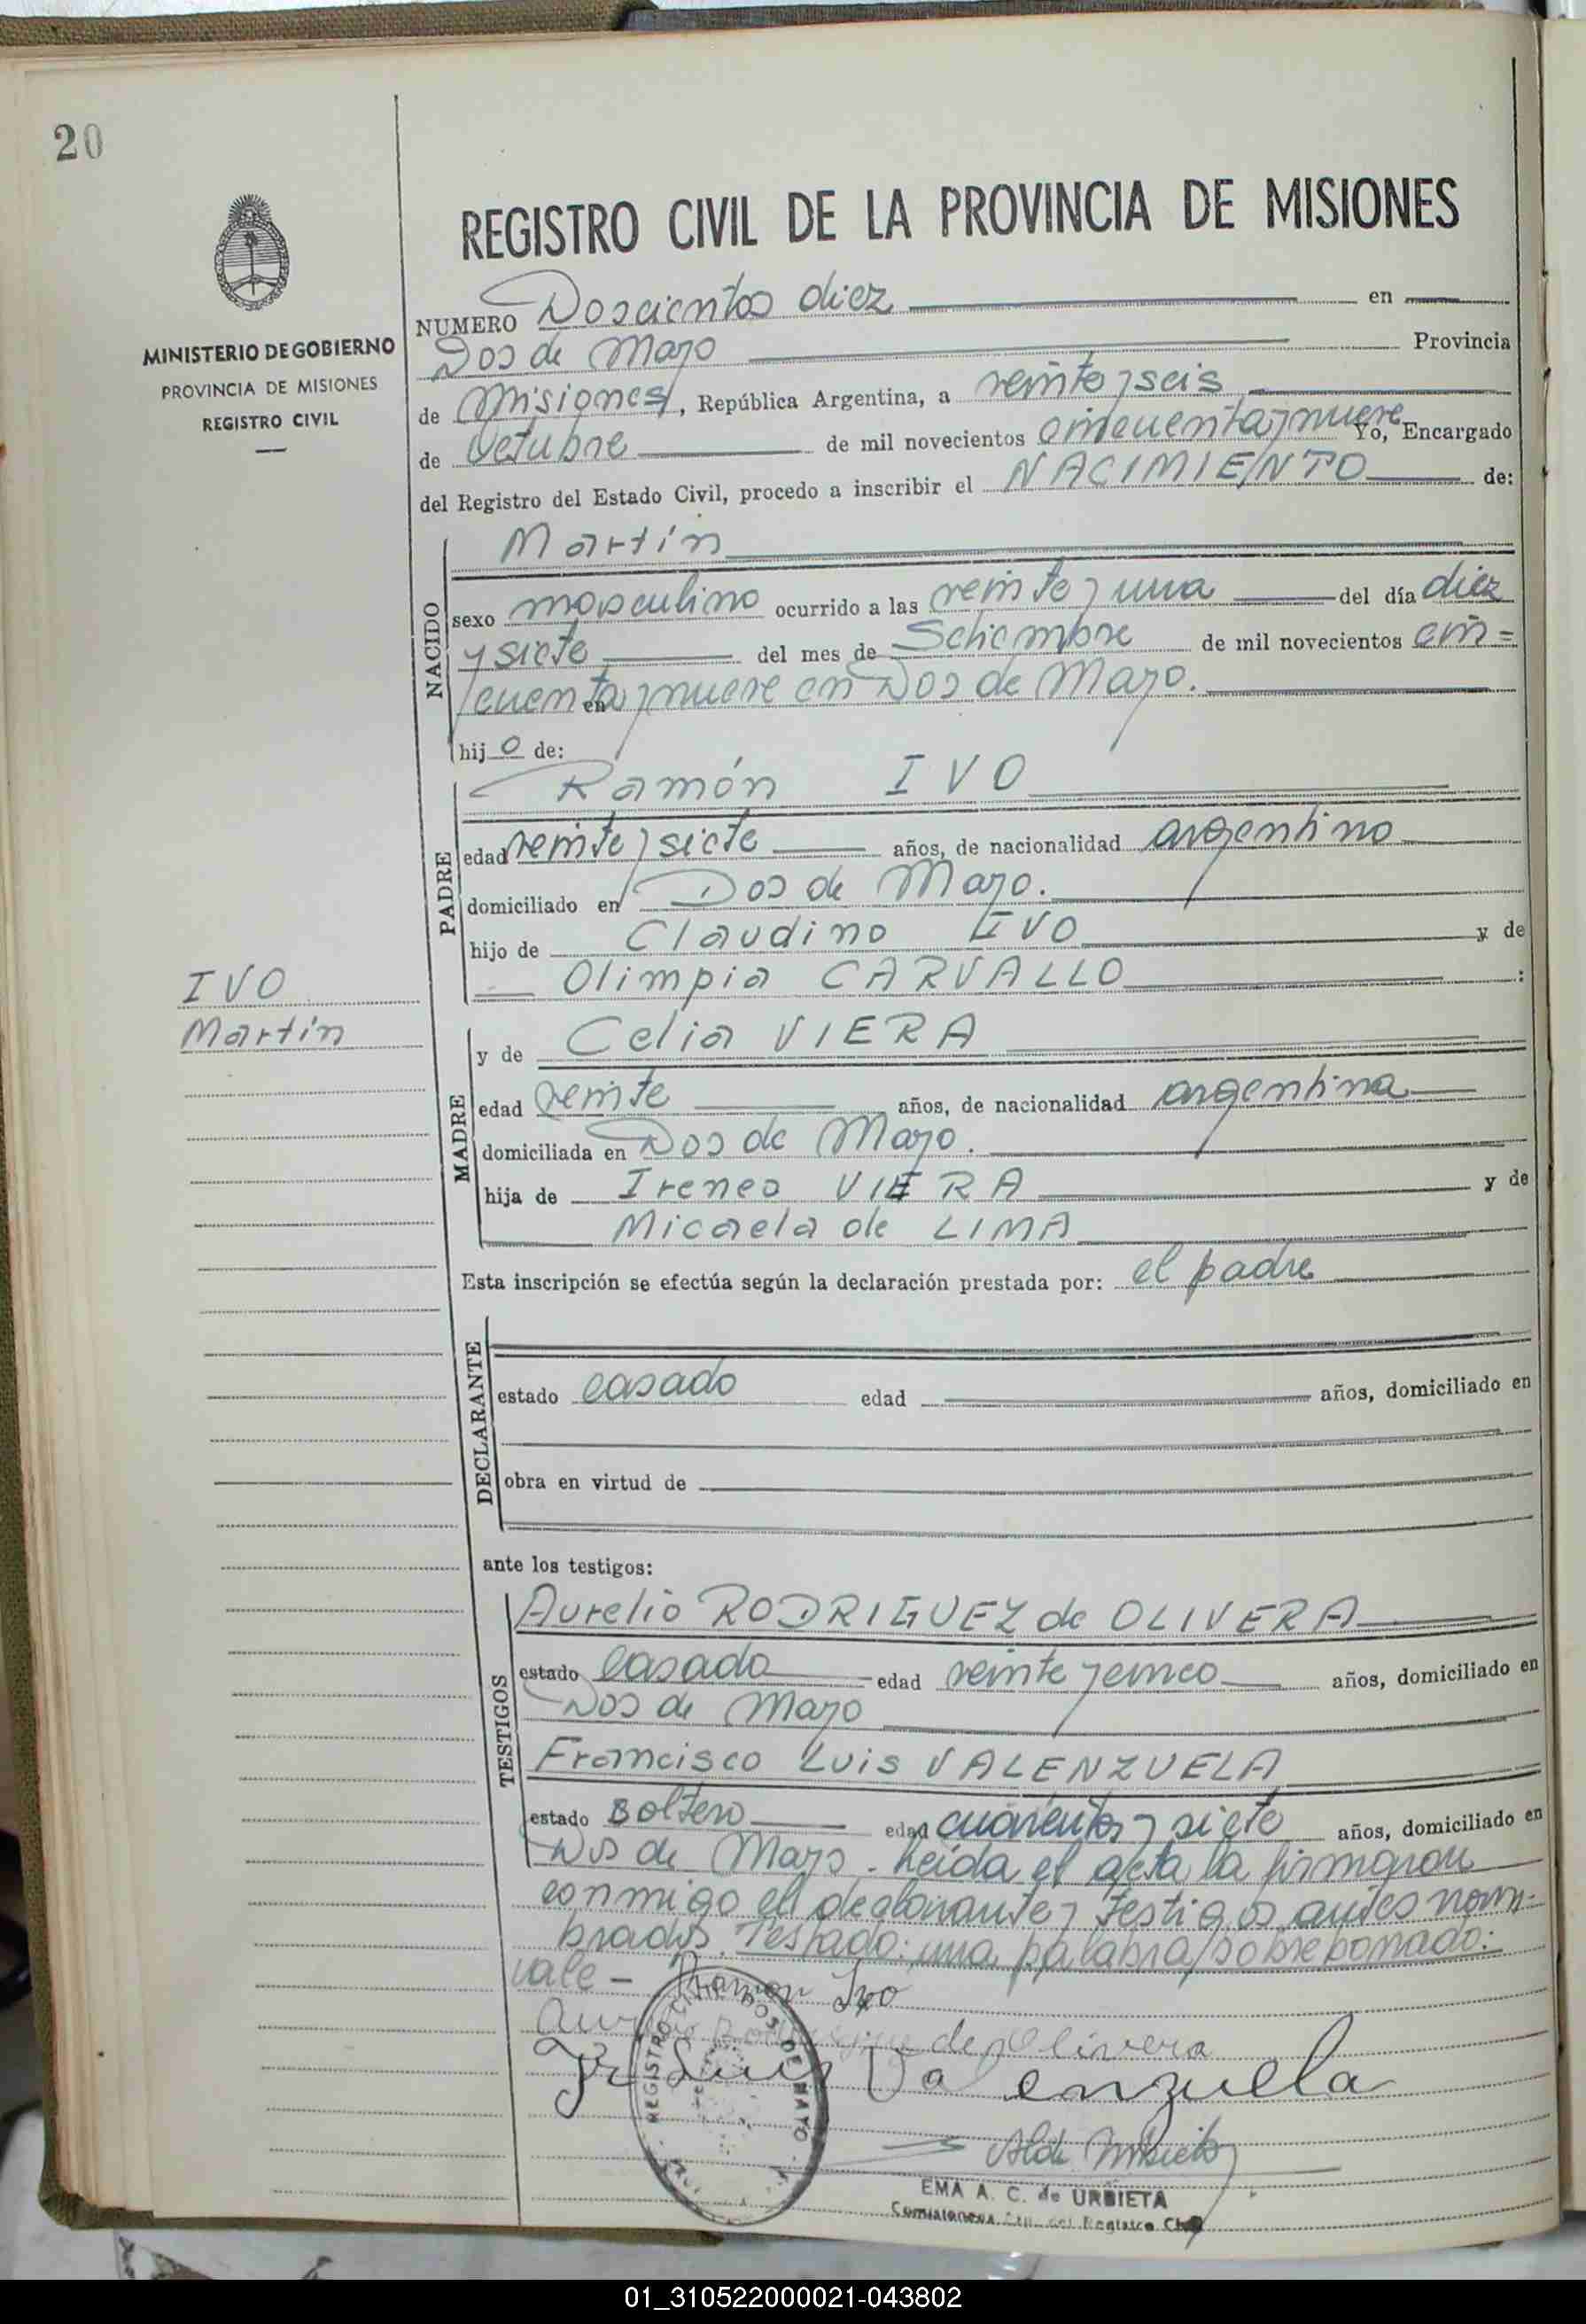 20
REGISTRO CIVIL DE LA PROVINCIA DE MISIONES
MINISTERIO DE GOBIERNO
PROVINCIA DE MISIONES
REGISTRO CIVIL
NUMERO Doscientos diez en
Dos de Mayo Provincia
de Misiones, República Argentina, a veinte y seis
de Octubre de mil novecientos cincuenta y nueve Yo, Encargado
del Registro del Estado Civil, procedo a inscribir el NACIMIENTO de:
NACIDO
Martín
sexo masculino ocurrido a las veinte y una del día diez
y siete del mes de Setiembre de mil novecientos cin=
cuenta y nueve en en Dos de Mayo.
hijo de:
PADRE
Ramón IVO
edad veinte y siete años, de nacionalidad argentino
domiciliado en Dos de Mayo.
hijo de Claudino IVO y de
Olimpia CARVALLO :
IVO
Martín
MADRE
y de Celia VIERA
edad veinte años, de nacionalidad argentina
domiciliada en Dos de Mayo.
hija de Ireneo VIERA y de
Micaela de LIMA
Esta inscripción se efectúa según la declaración prestada por: el padre
DECLARANTE
estado casado edad años, domiciliado en
obra en virtud de
ante los testigos:
TESTIGOS
Aurelio RODRIGUEZ de OLIVERA
estado casado edad veinte y cinco años, domiciliado en
Dos de Mayo
Francisco Luis VALENZUELA
estado soltero edad cuarenta y siete años, domiciliado en
Dos de Mayo. Leída el acta la firmaron
conmigo el declarante y testigos antes nom-
brados. Testado: una palabra/sobreborrado:
vale - Ramon Ivo
Aurelio Rodriguez de Olivera
Fr Luis Valenzuela
REGISTRO CIVIL DOS DE MAYO
EMA A. C. de URBIETA
Registro Civil
01_310522000021-043802